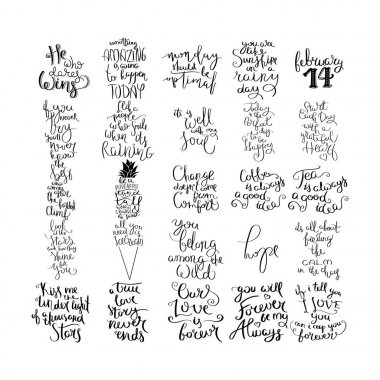 He
who
dares
Wins
something
AMAZING
is going
to happen
TODAY
monday
should
be
optional
you are
like
Sunshine
on a
rainy
day
february
14
if you
never
try
you'll
never
know
Be a
people
who
smile
when it's
Raining
it is
well
with
my
soul
Today
is the
perfect
day
to be
Happy
Start
Each Day
with a
Grateful
heart
the best
view
comes
after
the hardest
climb
be a
PINEAPPLE
stand tall
wear a
crown
Change
doesn't come
from
Comfort
Coffee
is always
a good
idea
Tea is
always
a good
idea
look
at the
Stars
look how
they
shine
for
you
all you
need is
icecream
You
belong
among
the
Wild
hope
it's all about
finding
the
CALM
in the chaos
Kiss me
under the
light of
a thousand
Stars
a
true
love
story
never
ends
Our
Love
is
forever
you will
Forever
be my
Always
if i tell you
I LOVE
you
can i keep you
forever